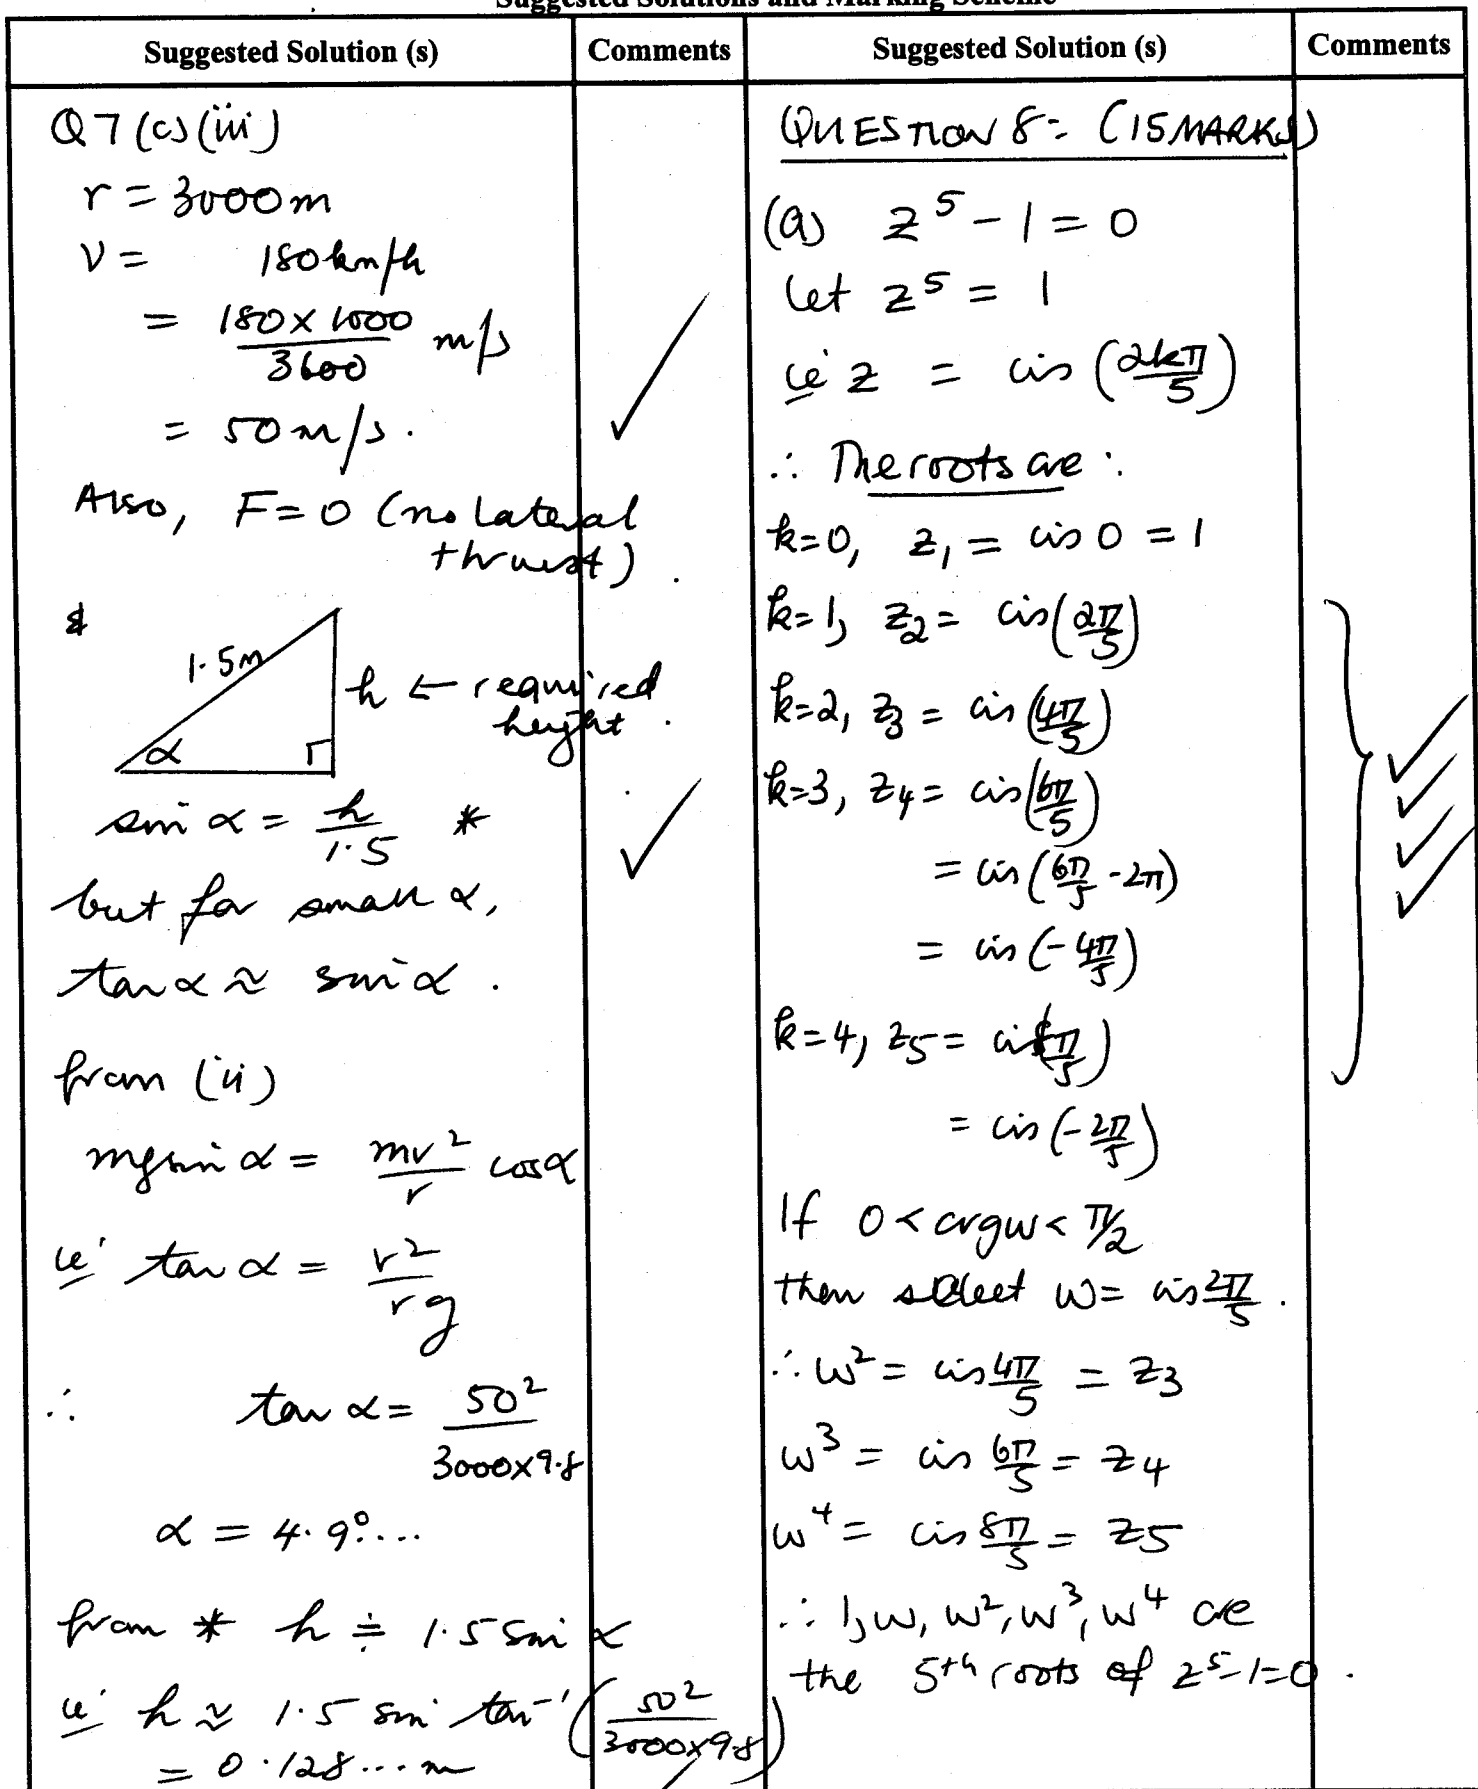 Suggested Solutions and Marking Scheme
Suggested Solution (s)
Comments
Q7(c)(iii)
r = 3000m
v = 180km/h
= 180×1000/3600 m/s
= 50m/s.
Also, F=0 (no lateral
thrust).
&
1.5m
h ← required
height.
α
sin α = h/1.5 *
but for small α,
tan α ≈ sin α.
from (ii)
mg sin α = mv²/r cos α
ie tan α = v²/rg
∴ tan α = 50²/3000×9.8
α = 4.9°...
from * h ≑ 1.5 sin α
ie h ≈ 1.5 sin tan⁻¹(50²/3000×9.8)
= 0.128...m
Suggested Solution (s)
Comments
QUESTION 8: (15 MARKS)
(a) z⁵ - 1 = 0
let z⁵ = 1
ie z = cis (2kπ/5)
∴ The roots are:
k=0, z₁ = cis 0 = 1
k=1, z₂ = cis(2π/5)
k=2, z₃ = cis(4π/5)
k=3, z₄ = cis(6π/5)
= cis(6π/5 - 2π)
= cis(-4π/5)
k=4, z₅ = cis(8π/5)
= cis(-2π/5)
If 0 < arg w < π/2
then select w = cis 2π/5.
∴ w² = cis 4π/5 = z₃
w³ = cis 6π/5 = z₄
w⁴ = cis 8π/5 = z₅
∴ 1, w, w², w³, w⁴ are
the 5th roots of z⁵-1=0.